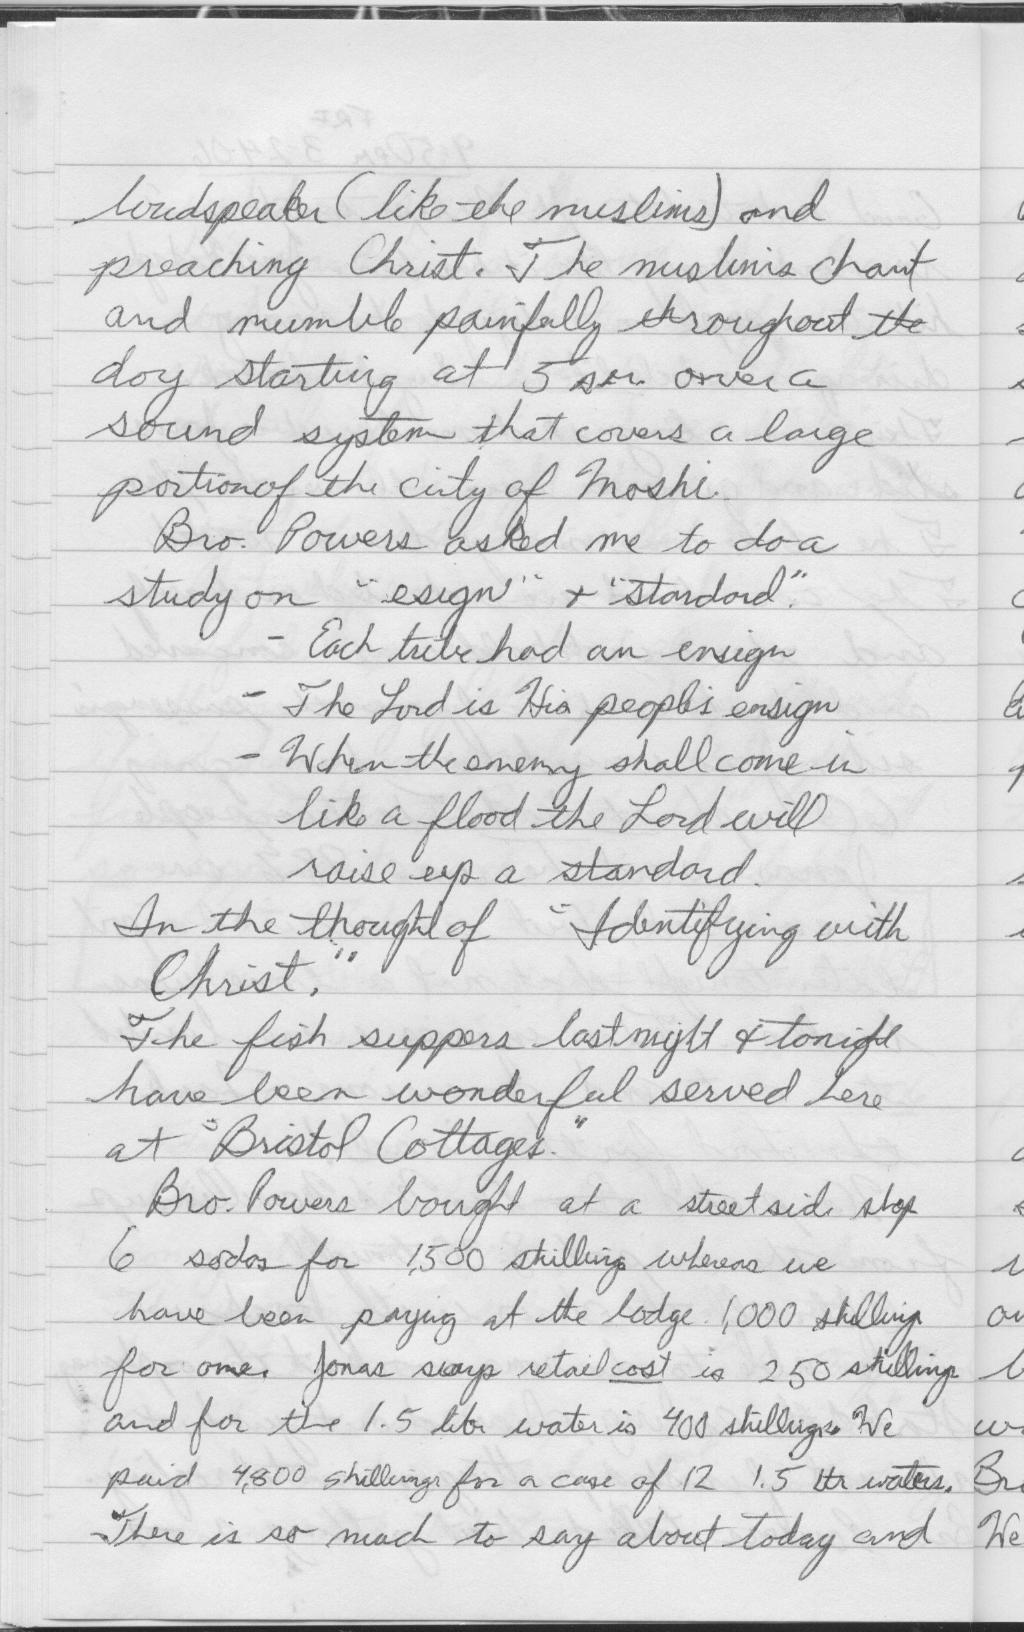 loudspeaker (like the muslims) and
preaching Christ. The muslims chant
and mumble painfully throughout the
day starting at 5 am. over a
sound system that covers a large
portion of the city of Moshi.
Bro. Powers asked me to do a
study on "esign" + "standard".
- Each tribe had an ensign
- The Lord is His people's ensign
- When the enemy shall come in
like a flood the Lord will
raise up a standard.
In the thought of "Identifying with
Christ."
The fish suppers last night & tonight
have been wonderful served here
at "Bristol Cottages."
Bro. Powers bought at a streetside shop
6 sodas for 1,500 shillings whereas we
have been paying at the lodge 1,000 shillings
for one. Jonas says retail cost is 250 shillings
and for the 1.5 litr water is 400 shillings. We
paid 4,800 shillings for a case of 12 1.5 ltr waters.
There is so much to say about today and